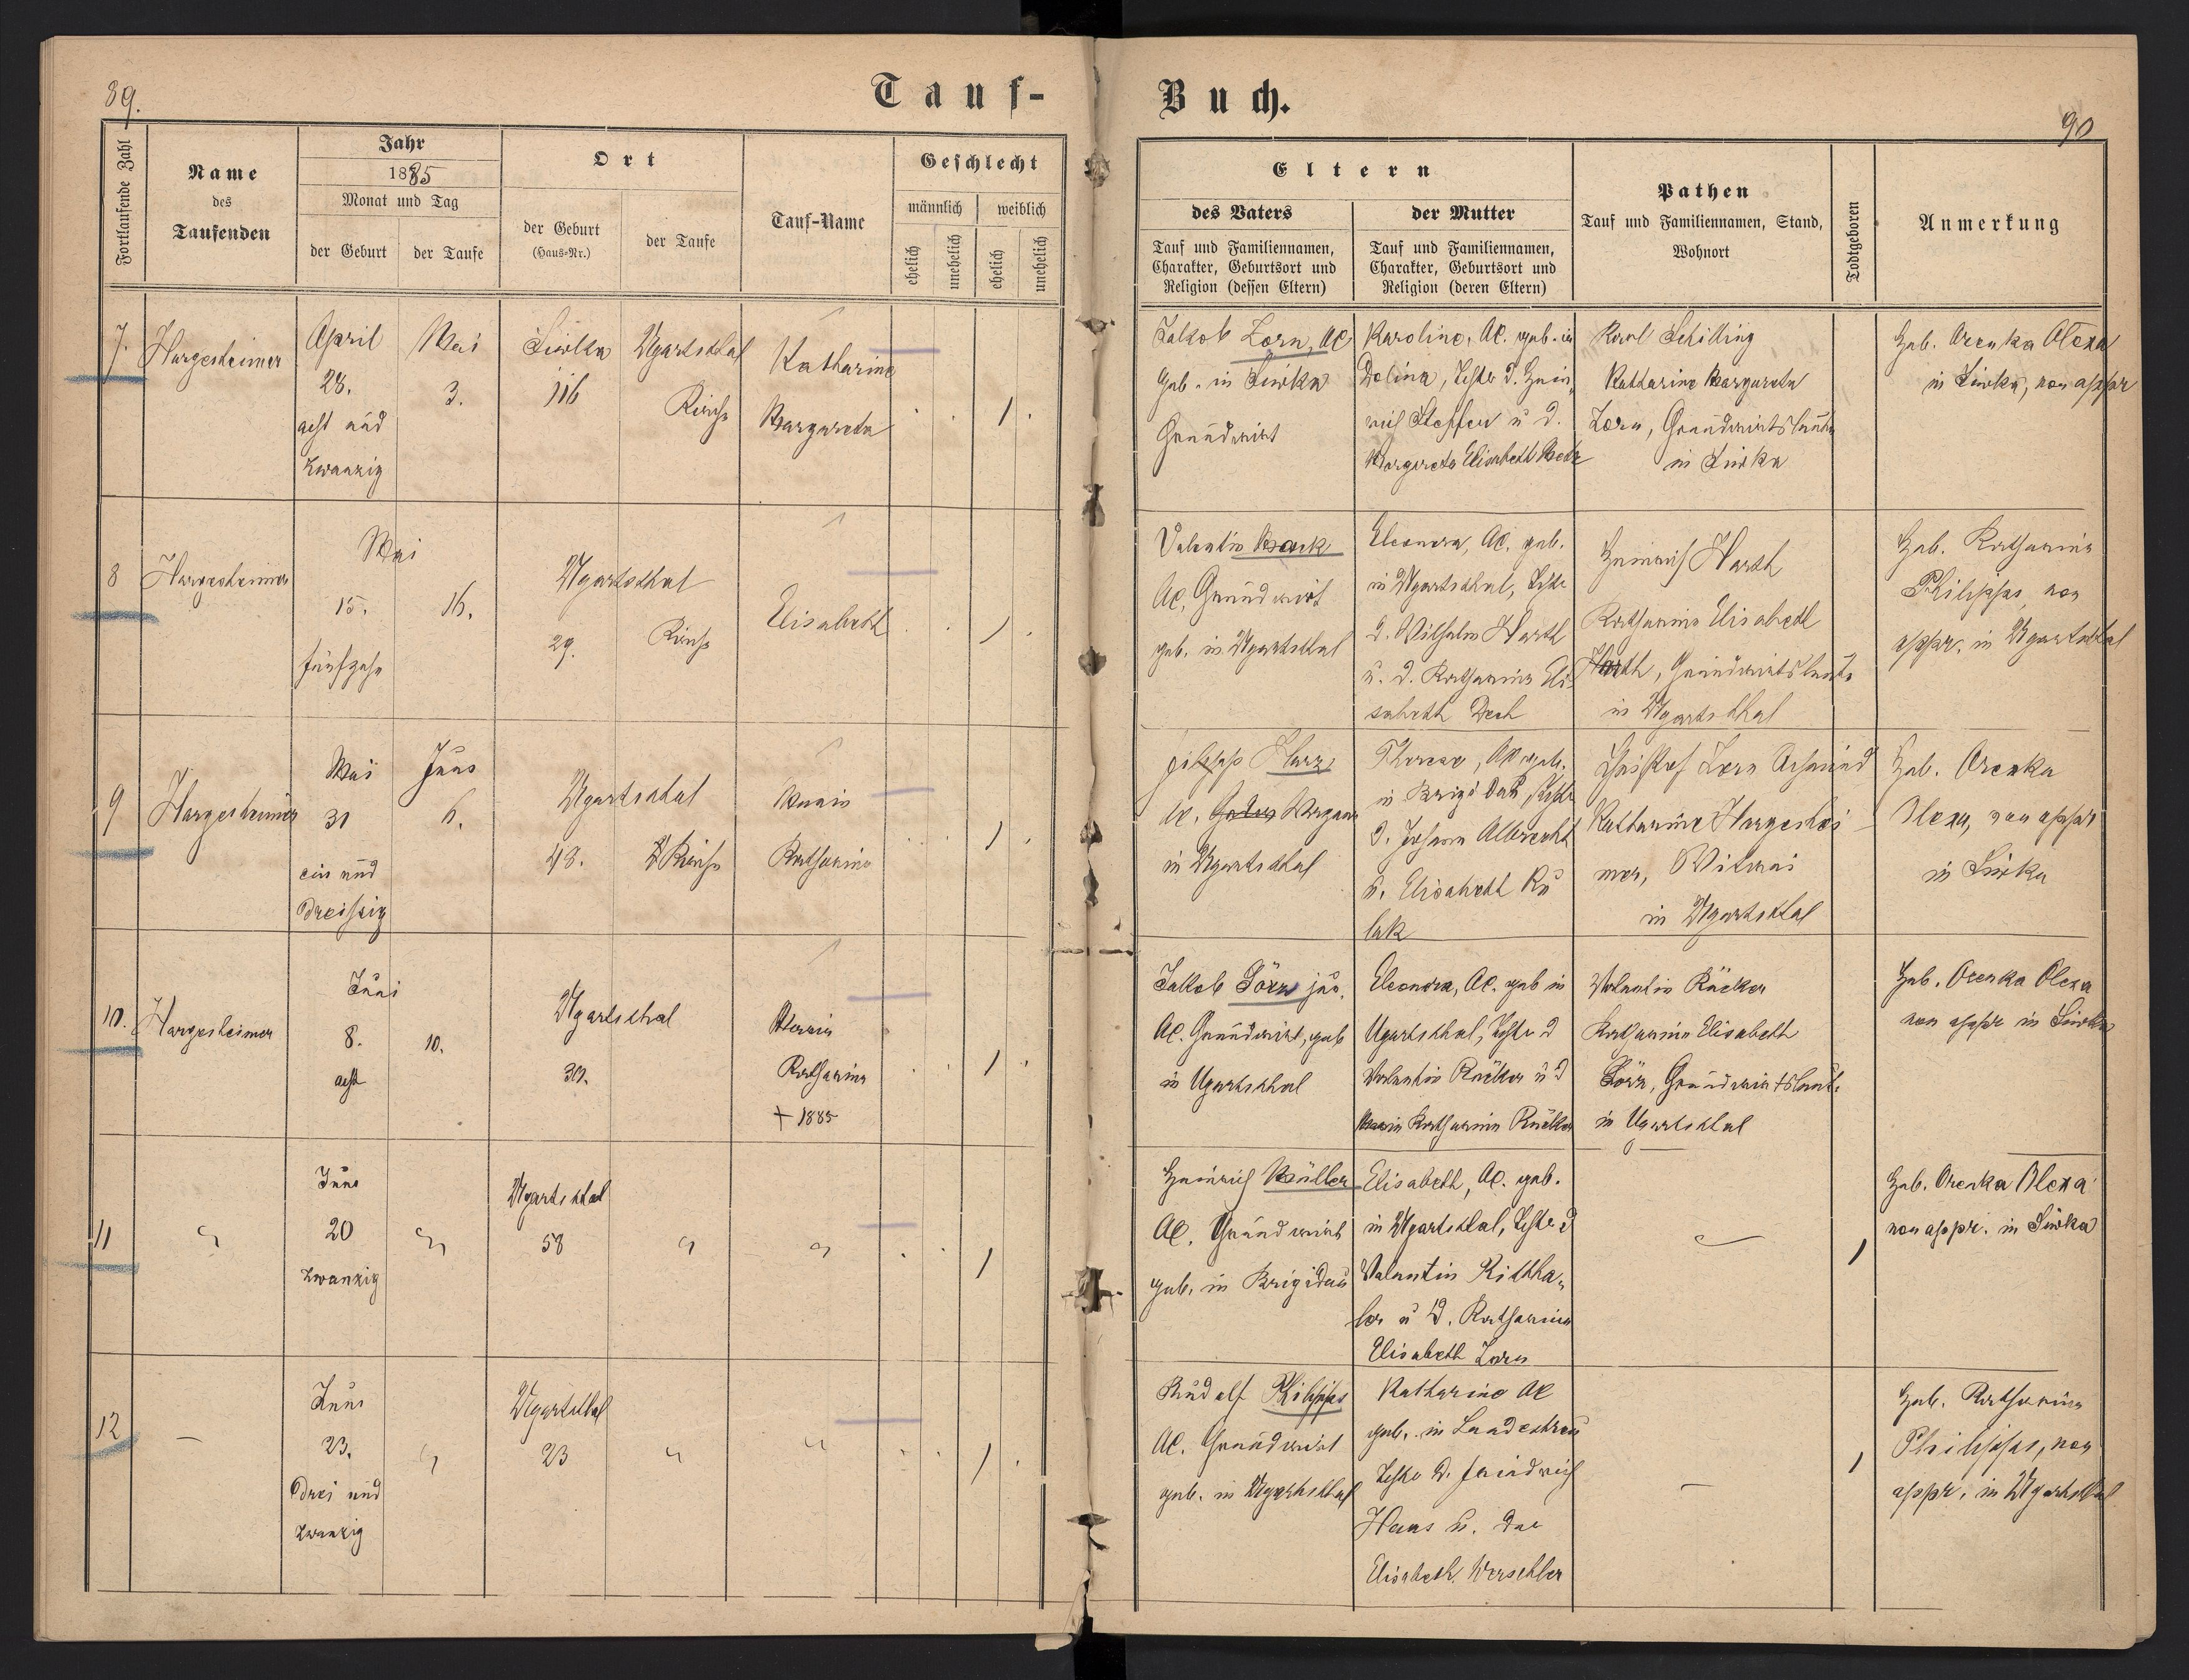 89.
Tauf-
Fortlaufende Zahl
Name
des
Taufenden
Jahr
1885
Monat und Tag
der Geburt
der Taufe
Ort
der Geburt
(Haus-Nr.)
der Taufe
Tauf-Name
Geschlecht
männlich
weiblich
ehelich
unehelich
ehelich
unehelich
7.
Hargesheimer
April
28.
acht und
zwanzig
Mai
3.
Siwka
116
Ugartsthal
Kirche
Katharina
Margareta
1
8
Hargesheimer
Mai
15.
fünfzehn
16.
Ugartsthal
29.
Kirche
Elisabeth
1
9
Hargesheimer
Mai
31
ein und
dreiszig
Juni
6.
Ugartsthal
48.
Kirche
Maria
Katharina
1
10.
Hargesheimer
Juni
8.
acht
10.
Ugartsthal
30.
Maria
Katharina
+ 1885
1
11
Juni
20
zwanzig
Ugartsthal
58
1
12
–
Juni
23.
drei und
zwanzig
Ugartsthal
23
1
Buch.
90
Eltern
des Vaters
Tauf und Familiennamen,
Charakter, Geburtsort und
Religion (dessen Eltern)
der Mutter
Tauf und Familiennamen,
Charakter, Geburtsort und
Religion (deren Eltern)
Pathen
Tauf und Familiennamen, Stand,
Wohnort
Todtgeboren
Anmerkung
Jakob Zorn, AC
geb. in Siwka
Grundwirt
Karoline, AC. geb. in
Dolina, Tochter d. Hein„
rich Steffen u d.
Margareta Elisabeth Metz
Karl Schilling
Katharine Margareta
Zorn, Grundwirtsleute
in Siwka
Heb. Orenka Olexa
in Siwka, non appr
Valentin Mack
AC, Grundwirt
geb. in Ugartsthal
Eleonora, AC. geb.
in Ugartsthal, Tochter
d. Wilhelm Harth
u. d. Katharina Eli-
sabeth Dech
Heinrich Harth
Katharina Elisabeth
Harth, Grundwirtsleute
in Ugartsthal
Heb. Katharina
Philipps, non
appr. in Ugartsthal
Filipp Harz
in Ugartsthal
Therese, AC geb.
in Brigidau, Tochter
d. Johann Albrecht
u. Elisabeth Ku
lak
Katharine Hargeshei
mer,
in Ugartsthal
Heb. Orenka
Olexa, non appr
in Siwka
Jakob Dörr jun.
AC. Grundwirt, geb
in Ugartsthal
Eleonora, AC. geb in
Ugartsthal, Tochter d
Valentin Rücker u d
Maria Katharina Rücker
Valentin Rücker
Katharina Elisabeth
Dörr, Grundwirtsleute
in Ugartsthal
Heb. Orenka Olexa
non appr in Siwka
Heinrich Müller
AC. Grundwirt
geb. in Brigidau
Elisabeth, AC. geb.
in Ugartsthal, Tochter d
Valentin Rittha„
ler u d. Katharina
Elisabeth Zorn
1
Heb. Orenka Olexa
non appr. in Siwka
Rudolf Philipps
AC. Grundwirt
geb. in Ugartsthal
Katharine AC
geb. in Landestreu
Tochter d. Friedrich
Haas u. der
Elisabeth Werschler
–
1
Heb. Katharina
Philipps, non
appr. in Ugartsthal